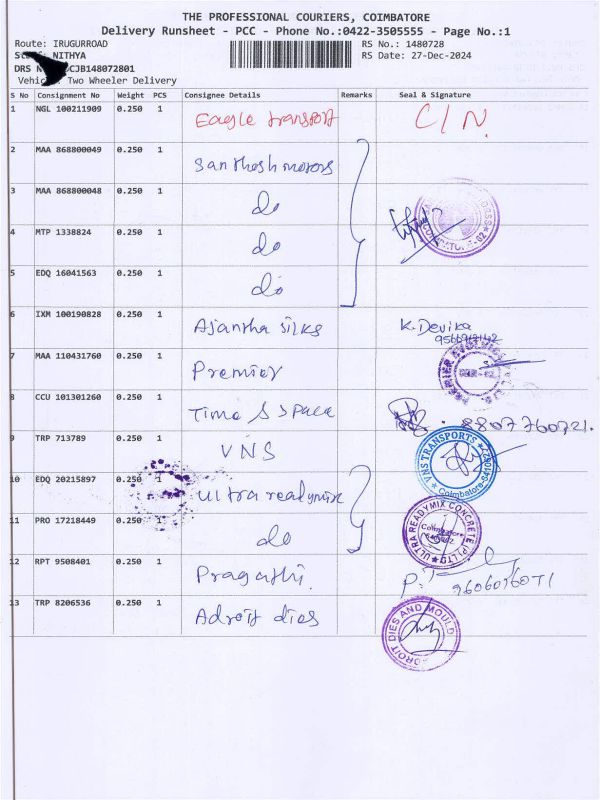 THE PROFESSIONAL COURIERS, COIMBATORE
Delivery Runsheet - PCC - Phone No.:0422-3505555 - Page No.:1
Route: IRUGURROAD RS No.: 1480728
NITHYA RS Date: 27-Dec-2024
DRS CJB148072801
Vehic Two Wheeler Delivery
S No Consignment No Weight PCS Consignee Details Remarks Seal & Signature
1 NGL 100211909 0.250 1 Eagle transport C/N.
2 MAA 868800049 0.250 1 Santhosh motors
3 MAA 868800048 0.250 1 do
4 MTP 1338824 0.250 1 do
5 EDQ 16041563 0.250 1 do
6 IXM 100190828 0.250 1 Ajantha silks K. Devika
7 MAA 110431760 0.250 1 Premier PREMIER
8 CCU 101301260 0.250 1 Time S space 8807760721.
9 TRP 713789 0.250 1 VNS VNS TRANSPORTS Coimbatore
10 EDQ 20215897 0.250 1 ultra readymix
11 PRO 17218449 0.250 1 do ULTRA READYMIX CONCRETE (P) LTD Coimbatore
12 RPT 9508401 0.250 1 Pragathi.
13 TRP 8206536 0.250 1 Adroit dies ADROIT DIES AND MOULD